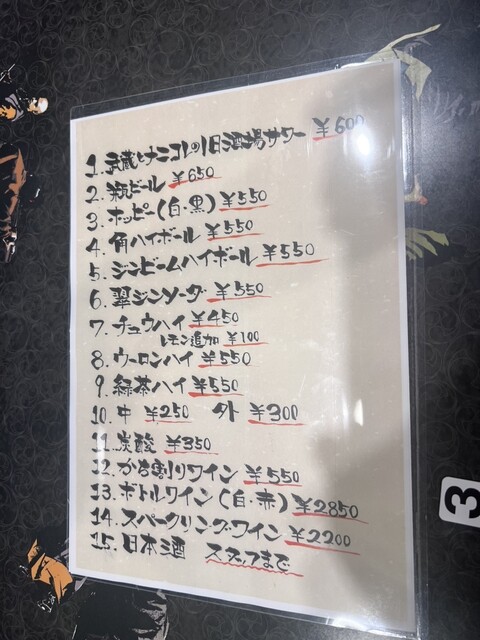 1. 武蔵とナニコレの旧酒場サワー ¥600
2. 瓶ビール ¥650
3. ホッピー(白・黒) ¥550
4. 角ハイボール ¥550
5. ジンビームハイボール ¥550
6. 翠ジンソーダ ¥550
7. チュウハイ ¥450
レモン追加 ¥100
8. ウーロンハイ ¥550
9. 緑茶ハイ ¥550
10. 中 ¥250 外 ¥300
11. 炭酸 ¥350
12. かち割りワイン ¥550
13. ボトルワイン(白・赤) ¥2850
14. スパークリングワイン ¥2200
15. 日本酒 スタッフまで
3